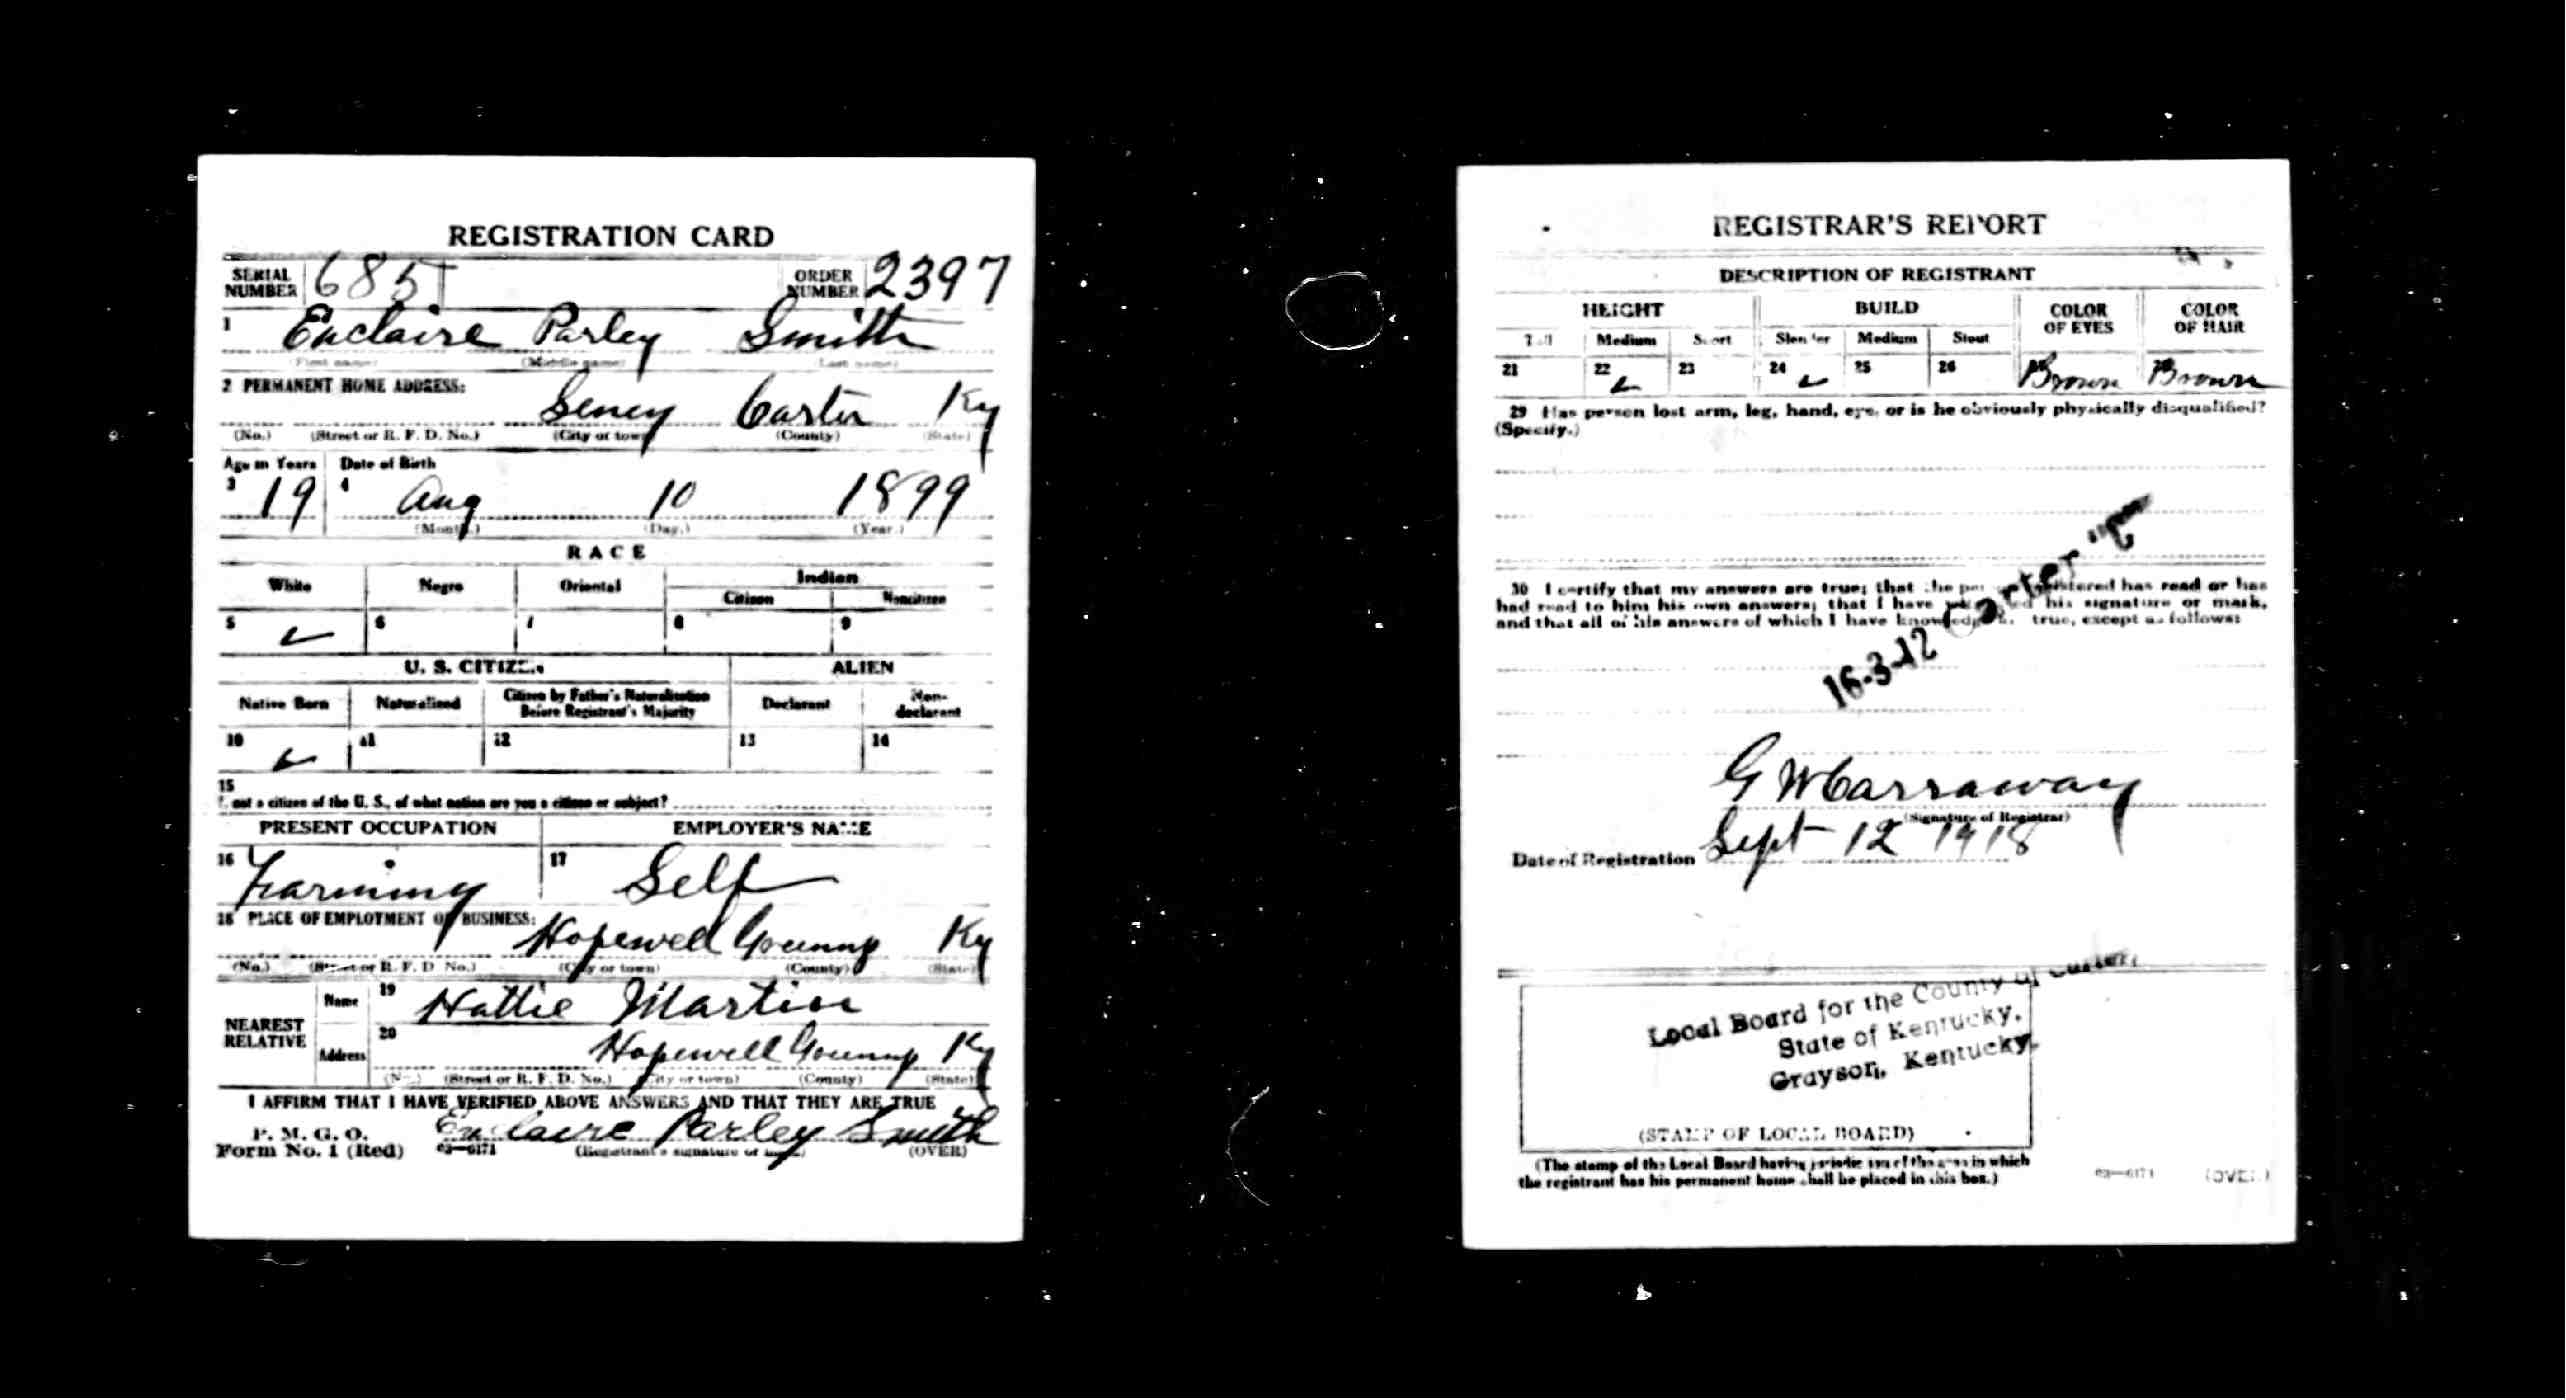 REGISTRATION CARD
SERIAL NUMBER 685 ORDER NUMBER 2397
1 Enclaire Parley Smith
(First name) (Middle name) (Last name)
2 PERMANENT HOME ADDRESS:
Seney Carter Ky
(No.) (Street or R. F. D. No.) (City or town) (County) (State)
Age in Years Date of Birth
3 19 4 Aug 10 1899
(Month.) (Day.) (Year.)
RACE
White Negro Oriental Indian
Citizen Noncitizen
5 6 7 8 9
U. S. CITIZEN ALIEN
Native Born Naturalized Citizen by Father's Naturalization Before Registrant's Majority Declarant Non-declarant
10 11 12 13 14
15
If not a citizen of the U. S., of what nation are you a citizen or subject?
PRESENT OCCUPATION EMPLOYER'S NAME
16 Farming 17 Self
18 PLACE OF EMPLOYMENT OR BUSINESS:
Hopewell Greenup Ky
(No.) (Street or R. F. D. No.) (City or town) (County) (State)
NEAREST RELATIVE Name 19 Hattie Martin
Address 20 Hopewell Greenup Ky
(No.) (Street or R. F. D. No.) (City or town) (County) (State)
I AFFIRM THAT I HAVE VERIFIED ABOVE ANSWERS AND THAT THEY ARE TRUE
P. M. G. O.
Form No. 1 (Red) 03—6171 Enclaire Parley Smith
(Registrant's signature or mark) (OVER)
REGISTRAR'S REPORT
DESCRIPTION OF REGISTRANT
HEIGHT BUILD COLOR OF EYES COLOR OF HAIR
Tall Medium Short Slender Medium Stout
21 22 23 24 25 26 27 Brown 28 Brown
29 Has person lost arm, leg, hand, eye, or is he obviously physically disqualified?
(Specify.)
30 I certify that my answers are true; that the person registered has read or has
had read to him his own answers; that I have witnessed his signature or mark,
and that all of his answers of which I have knowledge are true, except as follows:
16-3-12 Carter "C"
G W Carraway
(Signature of Registrar)
Date of Registration Sept 12 1918
Local Board for the County of Carter,
State of Kentucky,
Grayson, Kentucky.
(STAMP OF LOCAL BOARD)
(The stamp of the Local Board having jurisdiction of the area in which
the registrant has his permanent home shall be placed in this box.)
03—6171 (OVER)